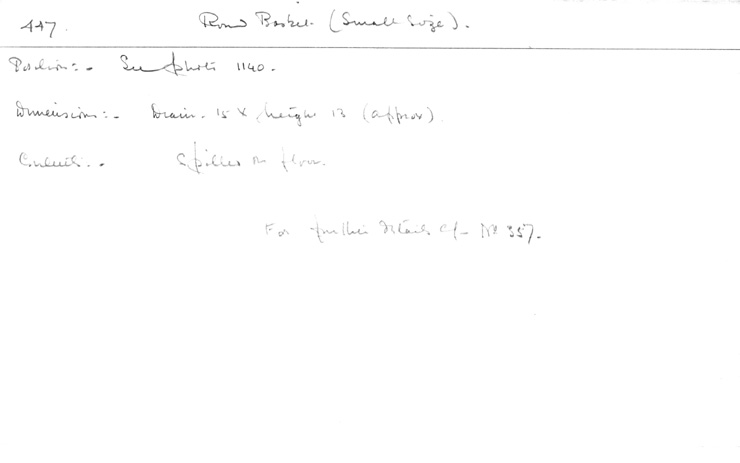 447. Round Basket. (Small Size).
Position:- See photo 1140.
Dimensions:- Diam. 15 x height 13 (approx)
Contents:- Spilled on floor.
For further details cf- Nº 357.